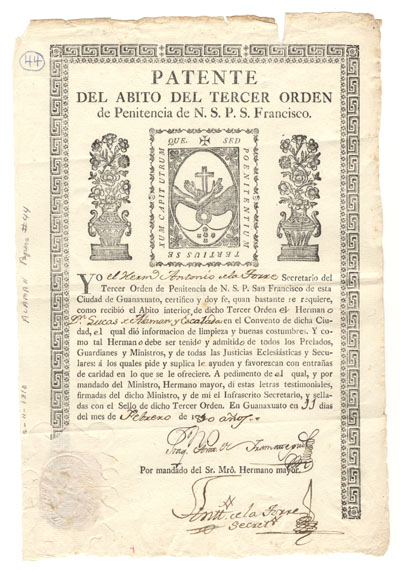 44
PATENTE
DEL ABITO DEL TERCER ORDEN
de Penitencia de N. S. P. S. Francisco.
QUE. SED
POENITENTIUM
TERTIUS SE
XUM CAPIT UTRUM
Yo el Herm.o Antonio de la Torre Secretario del
Tercer Orden de Penitencia de N. S. P. San Francisco de esta
Ciudad de Guanaxuato, certifico y doy fe, quan bastante se requiere,
como recibió el Abito interior de dicho Tercer Orden el Hermano
D.n Lucas de Alaman y Escalada en el Convento de dicha Ciu-
dad, el qual dió informacion de limpieza y buenas costumbres. Y co-
mo tal Hermano debe ser tenido y admitido de todos los Prelados,
Guardianes y Ministros, y de todas las Justicias Eclesiásticas y Secu-
lares á los quales pide y suplica le ayuden y favorezcan con entrañas
de caridad en lo que se le ofreciere. A pedimento de el qual, y por
mandado del Ministro, Hermano mayor, dí estas letras testimoniales,
firmadas del dicho Ministro, y de mi el Infrascrito Secretario, y sella-
das con el Sello de dicho Tercer Orden. En Guanaxuato en 11 dias
del mes de Febrero de años.
Por mandado del Sr. Mrô. Hermano mayor.
Antt.o de la Torre
Secret.o
ALAMAN Papers #44